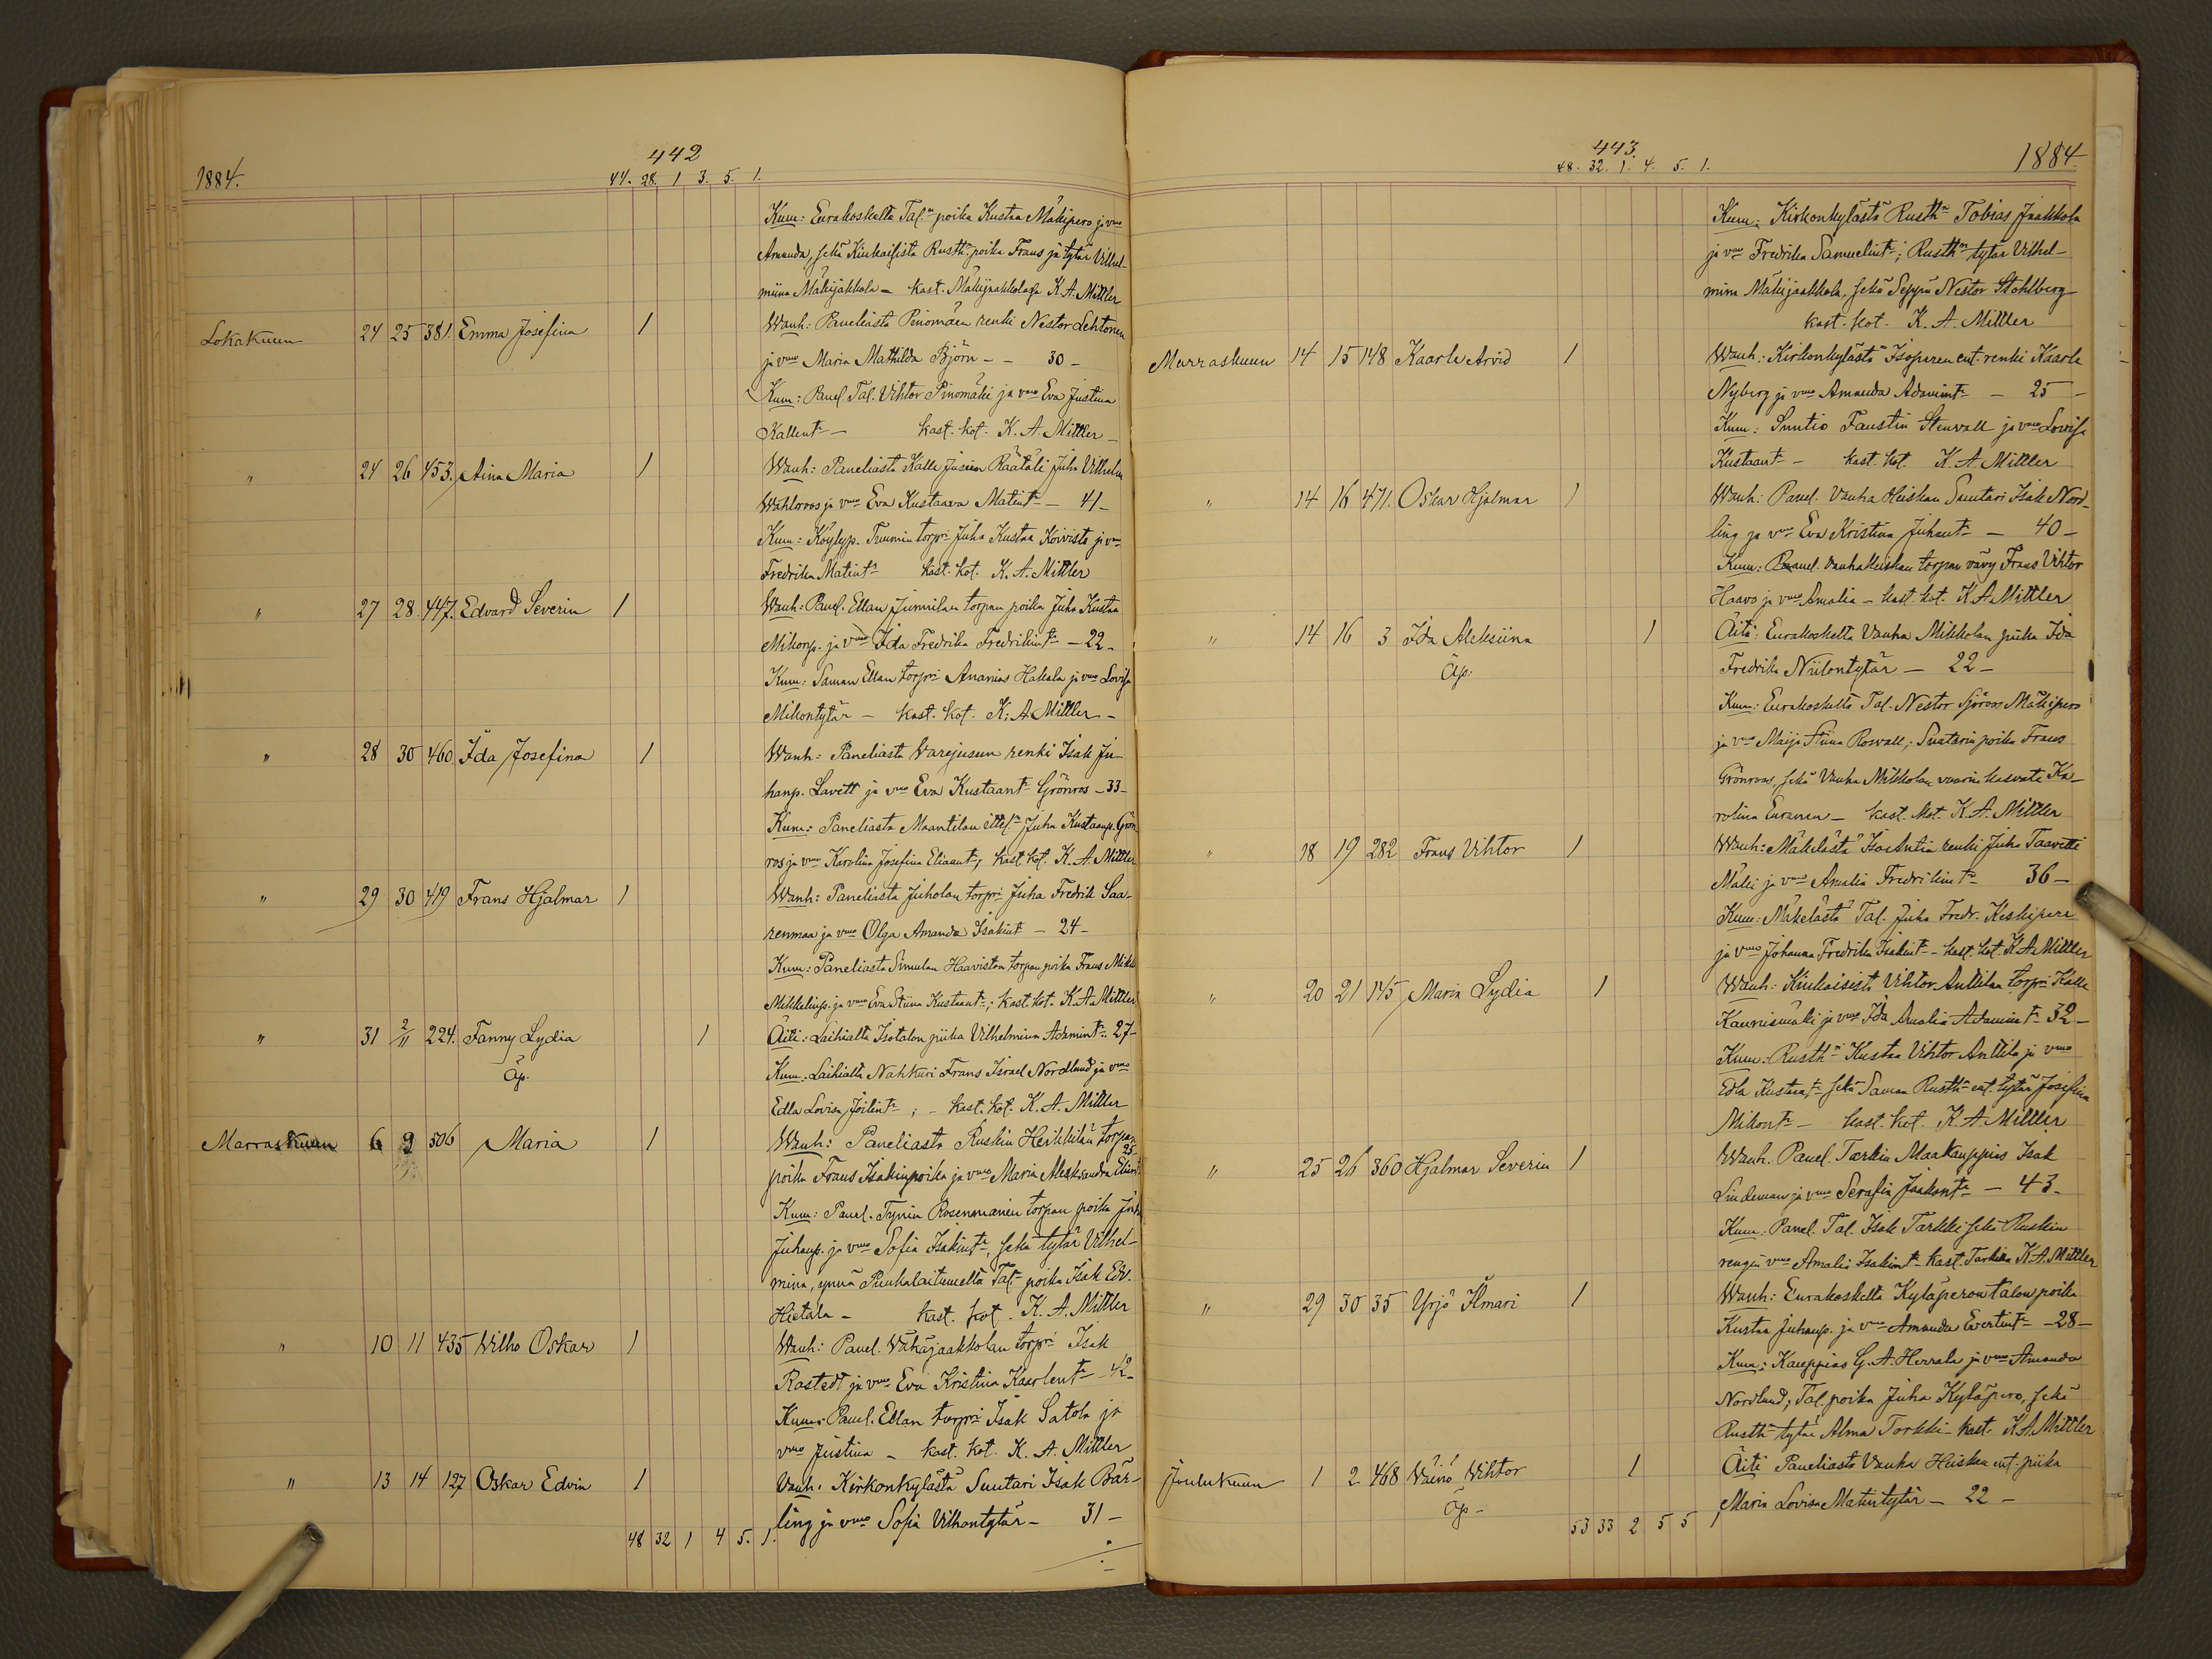 442
1884.
44. 28. 1 3. 5. 1.
Kum: Eurakoskelta Tal:n poika Kustaa Mäkipero ja vmo
Amanda, sekä Kiukaisista Rusth:n poika Frans ja tytär Vilhel-
miina Mäkijakkola - kast. Mäkijaakkolassa K. A. Mittler
Lokakuun 24 25 381. Emma Josefina 1 Wanh: Paneliasta Pinomäen renki Nestor Lehtonen
ja vmo Maria Mathilda Björn - - 30 -
Kum: Panel Tal. Vihtor Pinomäki ja vmo Eva Justina
Kallent:r - kast. kot. K. A. Mittler -
" 24 26 453. Aina Maria 1 Wanh: Paneliasta Kalle Jussin Räätäli Juha Vilhelm
Wahlroos ja vmo Eva Kustaava Matint:r - 41 -
Kum: Köylyp. Tuumin torpri Juha Kustaa Koivisto ja vmo
Fredrika Matint:r kast. kot. K. A. Mittler
" 27 28 447. Edvard Severin 1 Wanh: Panel. Ellan Junnilan torpan poika Juha Kustaa
Mikonp. ja vmo Ida Fredrika Fredrikint:r - 22 -
Kum: Saman Ellan torpri Ananias Hakala ja vmo Lovisa
Mikontytär - kast. kot. K. A. Mittler -
" 28 30 460. Ida Josefina 1 Wanh: Paneliasta Varejusun renki Isak Ju-
hanp. Lavett ja vmo Eva Kustaant:r Grönros - 33 -
Kum: Paneliasta Maantilan ittel:n Juha Kustaanp. Grön
ros ja vmo Karolina Josefina Eliaant:r, kast. kot. K. A. Mittler
" 29 30 419 Frans Hjalmar 1 Wanh: Paneliasta Juholan torpri Juha Fredrik Saa-
renmaa ja vmo Olga Amanda Isakint - 24 -
Kum: Paneliasta Simulan Haaviston torpan poika Frans Mikk
Mikkelinp. ja vmo Eva Stiina Kustaant:r; kast. kot. K. A. Mittler
" 31 2/11 224. Fanny Lydia 1 Äiti: Laihialta Isotalon piika Vilhelmina Adamint:r 27 -
Äp. Kum: Laihialta Nahkuri Frans Israel Nordlund ja vmo
Edla Lovisa Joilint:r; - kast. kot. K. A. Mittler
Marraskuun 6 9 506 Maria 1 Wanh: Paneliasta Ruskin Heikkilän torpan
poika Frans Isakinpoika ja vmo Maria Aleksandra Eliint 25
Kum: Panel. Tynin Rosenmänen torpan poika Juha
Juhanp. ja vmo Sofia Isakint:r, sekä tytär Vilhel-
mina, ynnä Punkalaitumelta Tal:n poika Isak Edv.
Hietala - kast. kot. K. A. Mittler
" 10 11 435 Wilho Oskar 1 Wanh: Panel. Vähäjaakkolan torpri Isak
Rostedt ja vmo Eva Kristina Kaarlent:r - 42 -
Kum: Panel. Ellan torpri Isak Satola ja
vmo Justina - kast. kot. K. A. Mittler
" 13 14 127 Oskar Edvin 1 Vanh. Kirkonkylästä Suutari Isak Bär-
ling ja vmo Sofia Vilhontytär - 31 -
48 32 1 4 5. 1.
443.
1884
48. 32. 1. 4. 5. 1.
Kum: Kirkonkylästä Rusth:n Tobias Jaakkola
ja vmo Fredrika Samuelint:r; Rusth:n tytär Vilhel-
mina Mäkijaakkola, sekä Seppä Nestor Stohlberg
kast. kot. K. A. Mittler
Marraskuun 14 15 148 Kaarle Arvid 1 Wanh: Kirkonkylästä Isoperen ent. renki Kaarle
Nyberg ja vmo Amanda Adamint:r - 25 -
Kum: Suntio Faustin Stenvall ja vmo Lovisa
Kustaant:r - kast. kot. K. A. Mittler
" 14 16 471. Oskar Hjalmar 1 Wanh: Panel. Vanha Heiskan Suutari Isak Nord-
ling ja vmo Eva Kristina Juhant:r - 40 -
Kum: Panel. Vanha Heiskan torpan vävy Frans Vihtor
Haavo ja vmo Amalia - kast. kot. K. A. Mittler
" 14 16 3 Ida Aleksiina 1 Äiti: Eurakoskelta Vanha Mikkolan piika Ida
Äp. Fredrika Niilontytär - 22 -
Kum: Eurakoskelta Tal. Nestor Sjöroos Mäkipero
ja vmo Maija Stiina Rosvall; Suutarin poika Frans
Grönroos, sekä Vanha Mikkolan vaarin kasvati Ka-
rolina Euranen - kast. kot. K. A. Mittler
" 18 19 282 Frans Vihtor 1 Wanh: Mäkelästä IsoAntin renki Juha Taavetti
Mäki ja vmo Amalia Fredrikint:r 36 -
Kum: Mäkelästä Tal. Juha Fredr. Keskipere
ja vmo Johanna Fredrika Isakint:r - kast. kot. K. A. Mittler
" 20 21 145 Maria Lydia 1 Wanh: Kiukaisista Vihtor Anttilan torpri Kalle
Kaunismäki ja vmo Ida Amalia Adamint:r 32 -
Kum: Rusth:ri Kustaa Vihtor Anttila ja vmo
Edla Kustaant:r sekä Saman Rusth:n ent. tytär Josefina
Mikont:r - kast. kot. K. A. Mittler
" 25 26 360 Hjalmar Severin 1 Wanh. Panel. Tarkin Maakauppias Isak
Lindeman ja vmo Serafia Jaakont:r - 43 -
Kum. Panel. Tal. Isak Tarkki sekä Ruskin
rengin vmo Amalia Isakint:r kast. Tarkilla K. A. Mittler
" 29 30 35 Yrjö Ilmari 1 Wanh: Eurakoskelta Kyläperon talon poika
Kustaa Juhanp. ja vmo Amanda Evertint:r - 28 -
Kum: Kauppias G. A. Herrala ja vmo Amanda
Nordlund; Tal. poika Juha Kyläpero, sekä
Rusth:n tytär Alma Torkki - kast. K. A. Mittler
Joulukuun 1 2 468 Väinö Vihtor 1 Äiti Paneliasta Vanha Heiskan ent. piika
Äp - Maria Lovisa Matintytär - 22 -
53 33 2 5 5 1